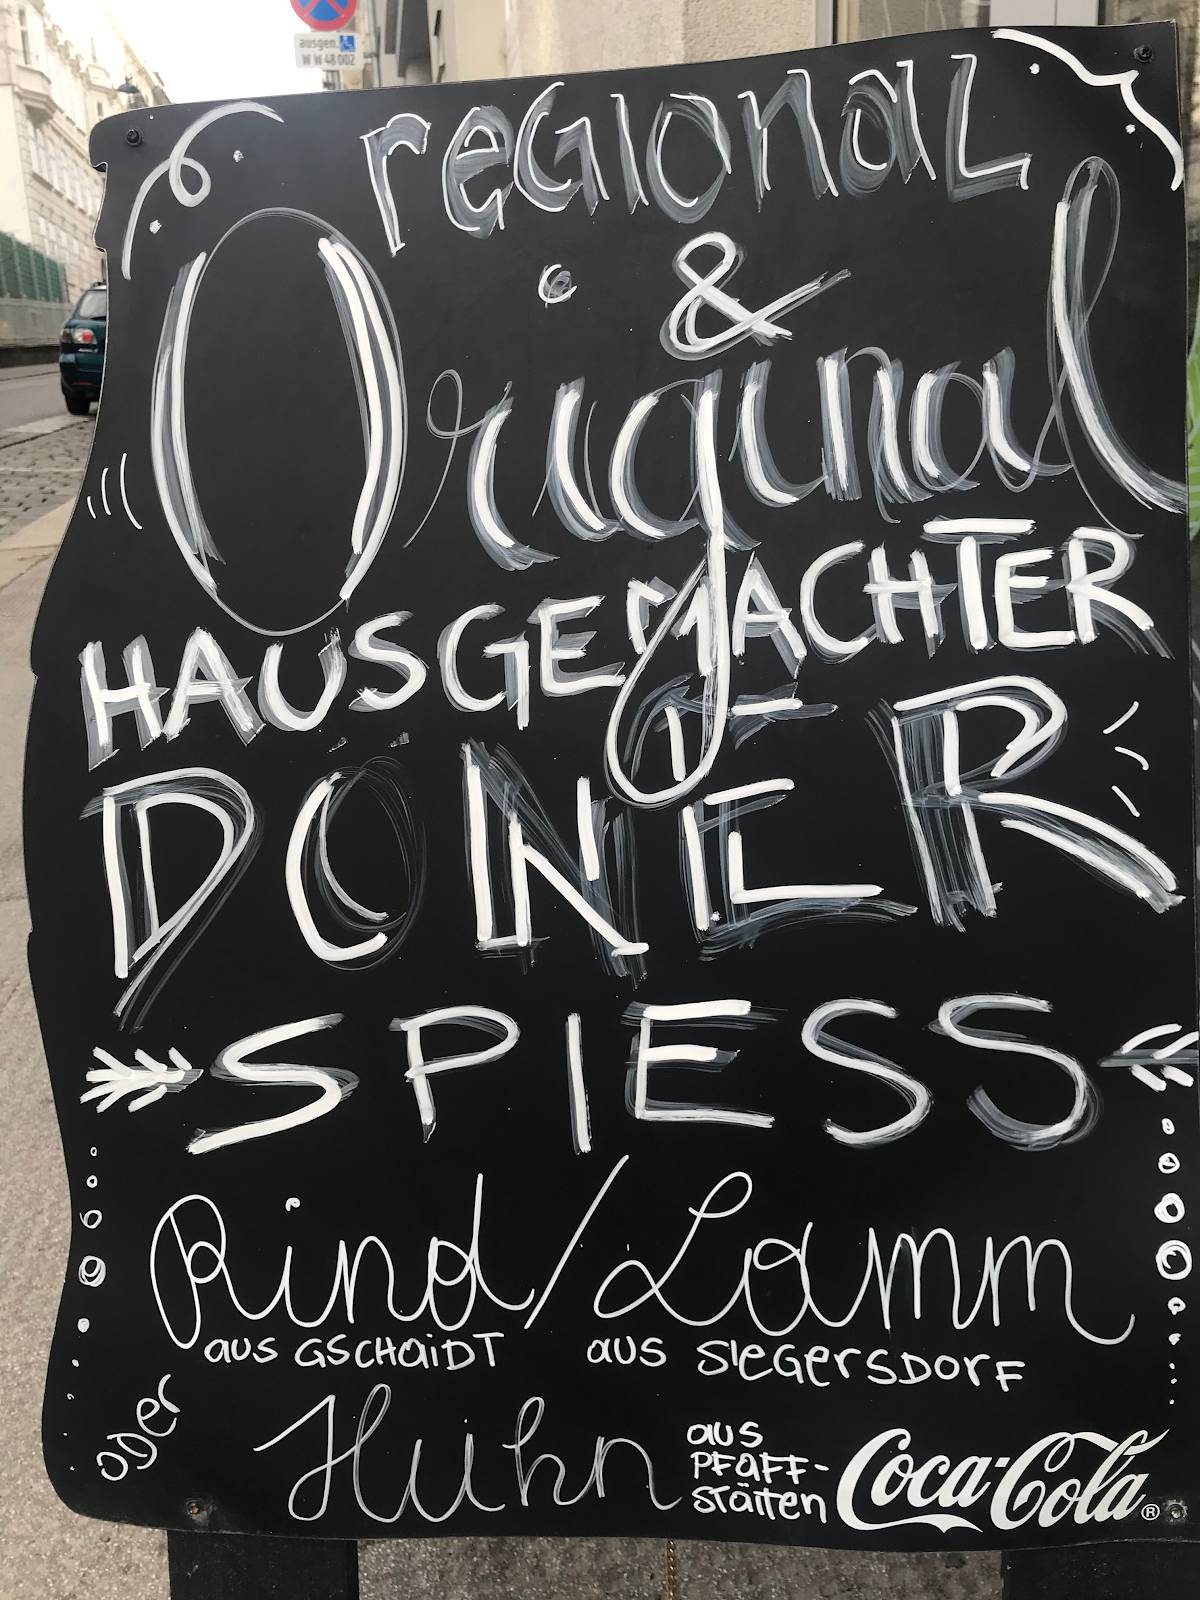 ausgen.
W W 48 002
reGIonaL
&
Original
HAUSGEMACHTER
DÖNER
SPIESS
Rind/Lamm
aus GSCHAiDT aus SIeGerSDOrF
ODer Huhn aus
PFaFF-
STäTTen
Coca-Cola®